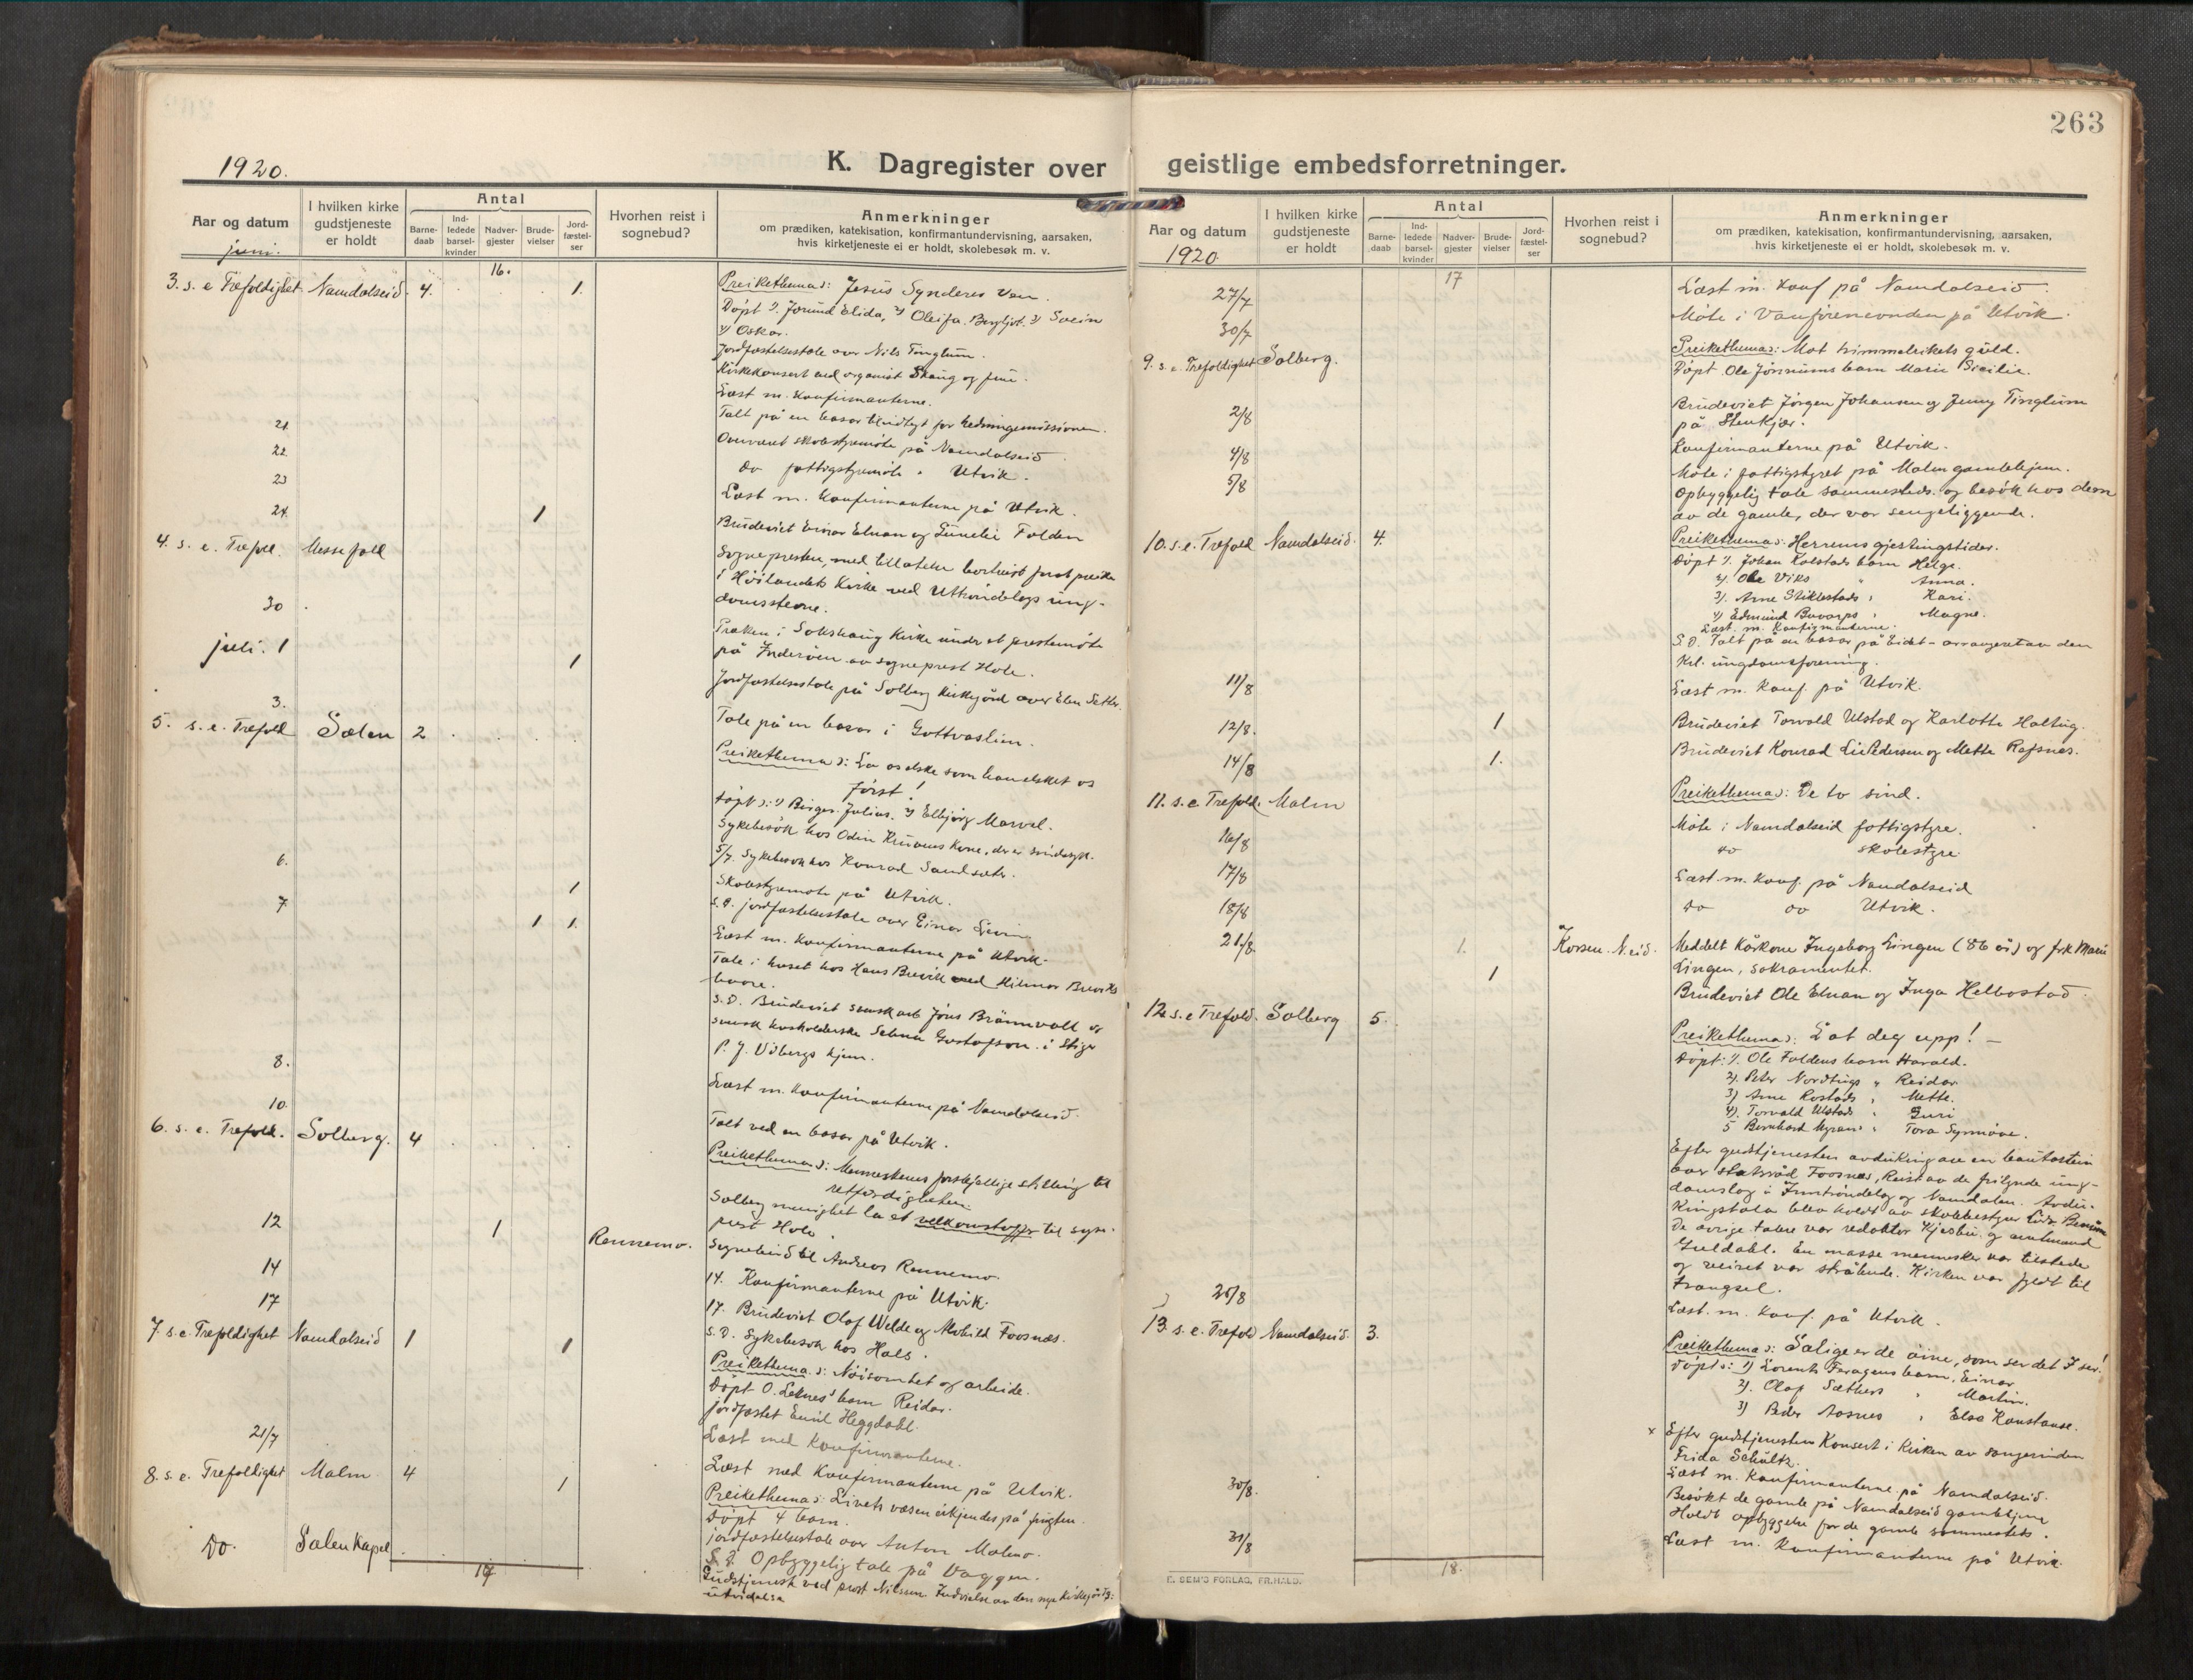 1920.
K. Dagregister over
Aar og datum
I hvilken kirke
gudstjeneste
er holdt
Antal
Barne-
daab
Ind-
ledede
barsel-
kvinder
Nadver-
gjester
Brude-
vielser
Jord-
fæstel-
ser
Hvorhen reist i
sognebud?
Anmerkninger
om prædiken, katekisation, konfirmantundervisning, aarsaken,
hvis kirketjeneste ei er holdt, skolebesøk m. v.
juni.
16.
3. s. e Trefoldighet. Namdalseid. 4. 1. Preikethema: Jesus Synderes Ven.
Döpt 1. Jorund Elida, 2) Oleifa Bergljot. 3) Svein
4) Oskar.
Jordfæstelsestale over Nils Tinglum.
Kirkekonsert ved organist Skaug og frue.
Læst m. Konfirmanterne.
21. Talt på en basar til indtægt for hedningemissionen.
22. Overværet skolestyremöte på Namdalseid.
23 do fattigstyremöte " Utvik.
24. Læst m. Konfirmanterne på Utvik.
1 Brudeviet Einar Elnan og Gunelie Folden
4. s. e. Trefold. Messefald Sognepresten, med tillatelse bortreist for at preike
i Höilandets Kirke ved Uttröndelags ung-
domsstevne.
30 Præken i Sakshaug Kirke under et prestemöte
på Inderöen av sogneprest Hole.
juli. 1 1 Jordfæstelsestale på Solberg Kirkegård over Elen Sætter.
3. Tale på en basar i Gottvaslien.
5. s. e. Trefold Sælen 2 Preikethema: La os elske som han elsket os
först!
döpt: 1) Birger Julius. 2) Elbjörg Marvel.
Sykebesök hos Odin Kruvens Kone, der er sindssyk.
5/7. Sykebesök hos Konrad Sandsæter.
6. Skolestyremöte på Utvik.
1 S.D. jordfæstelsestale over Einar
7. Læst m. Konfirmanterne på Utvik.
1 1. Tale i huset hos Hans Brevik ved Hilmar Breviks
baare.
S.D. Brudeviet svensk arb Jöns Brännvall og
svensk husholderske Selma Gustafson i Stiger
P. J. Vibergs hjem.
8. Læst m. Konfirmanterne på Namdalseid.
10. Talt ved en basar på Utvik.
6. s. e. Trefold. Solberg. 4 Preikethema: Menneskenes forskjellige stilling til
retfærdigheten
Solberg menighet la et velkomstoffer til sogne-
prest Hole.
12 1 Rennemo. Sognebud til Andreas Rennemo.
14 14. Konfirmanterne på Utvik.
17 17. Brudeviet Olaf Welde og Alvhild Foosnæs.
S.D. Sykebesök hos Hals.
7. s. e. Trefoldighet Namdalseid 1 1 Preikethema: Nöisomhet og arbeide.
Döpt O. Leknes' barn Reidar.
jordfæstet Emil Heggdahl.
Læst med Konfirmanterne.
21/7 Læst med Konfirmanterne på Utvik.
8. s. e. Trefoldighet Malm 4 1 Preikethema: Livets væsen erkjendes på frugten.
Döpt 4 barn.
jordfæstelsestale over Anton Malmo.
S. D. Opbyggelig tale på Vaggen.
Do. Sælen Kapel Gudstjeneste ved prost Nilssen. Indvielse av den nye kirkegårds-
utvidelse
17
263
geistlige embedsforretninger.
Aar og datum
I hvilken kirke
gudstjeneste
er holdt
Antal
Barne-
daab
Ind-
ledede
barsel-
kvinder
Nadver-
gjester
Brude-
vielser
Jord-
fæstel-
ser
Hvorhen reist i
sognebud?
Anmerkninger
om prædiken, katekisation, konfirmantundervisning, aarsaken,
hvis kirketjeneste ei er holdt, skolebesøk m. v.
1920.
17
27/7 Læst m. konf på Namdalseid.
30/7 Möte i på Utvik.
9. s. e. Trefoldighet Solberg. Preikethema: Mot himmelrikets guld.
Döpt Ole Jönnums barn Marie Sicilie.
2/8 Brudeviet Jörgen Johansen og Jenny Tinglum
på Stenkjær.
4/8 Konfirmanterne på Utvik.
5/8 Möte i fattigstyret på Malm gamlehjem.
Opbyggelig tale sammesteds. og besök hos dem
av de gamle, der var sengeliggende.
10. s. e. Trefold Namdalseid. 4. Preikethema: Herrens gjestingstider.
Döpt 1. Johan Kolstads barn Helge.
2). Ole Viks " Anna.
3). Arne Stiklestads " Kari.
4) Edmund Buvarps " Magne.
Læst. m. Konfirmanterne.
S. D. Talt på en basar på Eidet - arrangeret av den
Krl. ungdomsforening.
11/8 Læst m. Konf. på Utvik.
12/8. 1 Brudeviet Torvald Ulstad og Karlotte Haltug.
14/8 1. Brudeviet Konrad Lie Pedersen og Mette Rafsnes.
11. s. e. Trefold. Malm Preikethema: De to sind.
16/8 Möte i Namdalseid fattigstyre.
do skolestyre
17/8 Læst m. Konf. på Namdalseid
18/8 do do Utvik.
21./8. 1. Korsen. N.eid. Meddelt Kårkone Ingeborg Lingen (86 år) og frk Marie
Lingen, sakramentet.
1 Brudeviet Ole Elnan og Inga Helbostad.
12. s. e Trefold. Solberg 5. Preikethema: Lat deg upp! —
Döpt: 1. Ole Foldens barn Harald.
2). Peter Nordtugs " Reidar
3) Arne Rostads " Mette.
4). Torvald Ulstads " Guri
5 Bernhard Myrans " Tora Synnöve.
Efter gudstjenesten avduking av en bautastein
over statsråd Foosnæs, Reist av de frilynde ung-
domslag i Inntröndelag og Namdalen. Avdu-
kingstalen blev holdt av skolebestyrer
De övrige talere var redaktör Kjesbu og amtmand
Guldahl. En masse mennesker var tilstede
og veiret var strålende. Kirken var fyldt til
trængsel.
25/8 Læst. m. Konf. på Utvik.
13. s. e. Trefold Namdalseid. 3. Preikethema: Salige er de öine, som ser det I ser!
Döpt: 1) Lorents Faragens barn, Einar
2). Olaf Sæthers " Martin.
3) Peder Aasnes " Elsa Konstanse.
x Efter gudstjenesten Konsert i Kirken av sangerinden
Frida Schultz.
30/8. Læst m. Konfirmanterne på Namdalseid.
Besökt de gamle på Namdalseid gamlehjem
Holdt opbyggelse for de gamle sammesteds.
31/8 Læst m. Konfirmanterne på Utvik.
18.
E. SEM'S FORLAG, FR.HALD.